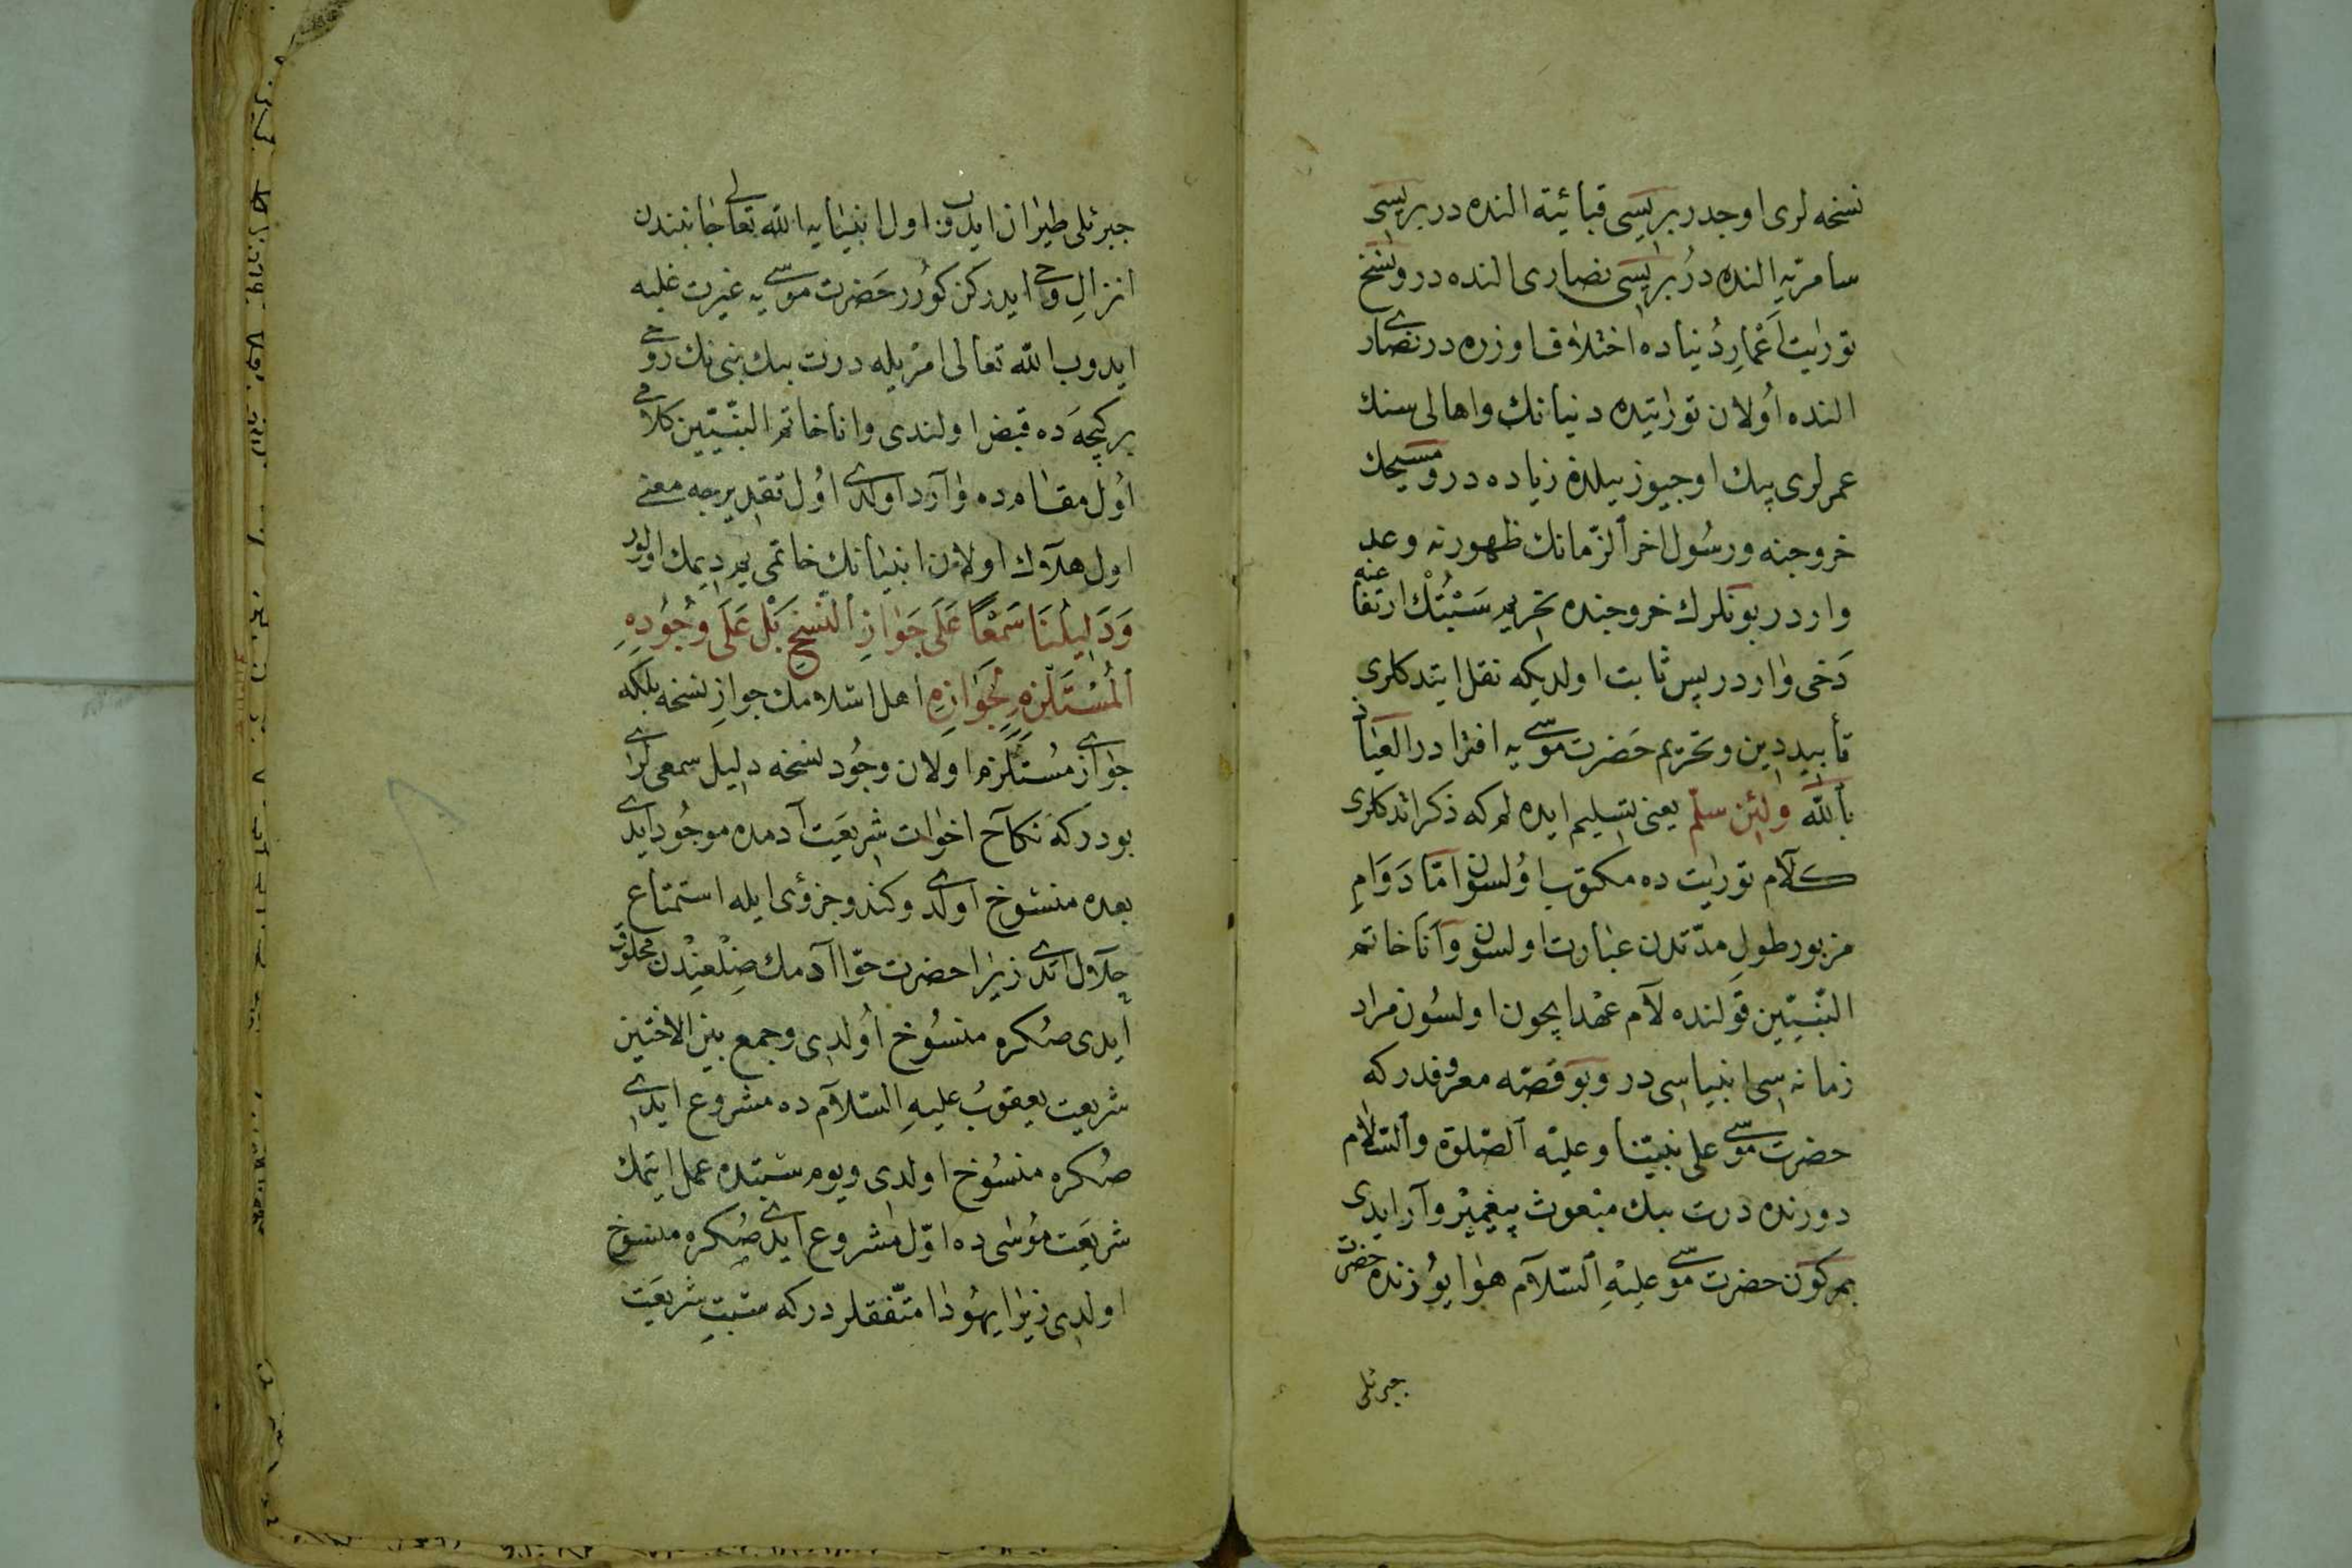 نسخه لری اوچدر بریسی قبائیة النده در بریسی
سامریه النده در بریسی نصاری النده در و نسخ
توراتیت اعمار دنیاده اختلاف اوزره در نصاری
النده اولان توراتیده دنیانك و اهالی سنك
عمرلری بیك اوچیوز ییلدن زیاده در و مسیحك
خروجنه و رسول اخر الزمانك ظهورنه وعد
واردر بونلرك خروجنده تحریم سبتك ارتفاعنه
دخی واردر پس ثابت اولدیکه نقل ایتدکلری
تأبید دین و تحریم حضرت موسی یه افترا در العیاذ
بالله ولئن سلم یعنی تسلیم ایده لم که ذکر اتدکلری
کلام توراتیت ده مکتوب اولسون اما دوام
مزبور طول مدتدن عبارت اولسون و انا خاتم
النبیین قولنده لام عهد ایچون اولسون مراد
زمانه سی انبیاسی در و بو قصه معروفدر که
حضرت موسی علی نبینا و علیه الصلوة والسلام
دورنده درت بیك مبعوث پیغمبر وار ایدی
بر کون حضرت موسی علیه السلام هوا یوزنده حضرت
جبرئلی
جبرئلی طیران ایدوب اول انبیایه الله تعالی جانبندن
انزال وحی ایدرکن کورر حضرت موسی یه غیرت غلبه
ایدوب الله تعالی امریله درت بیك نبی نك روحی
بر کیجه ده قبض اولندی و انا خاتم النبیین کلامی
اول مقامده وارد اولدی اول تقدیرجه معنی
اول هلاك اولان انبیانك خاتمی یم دیمك اولور
وَدَلِیلُنَا سَمْعًا عَلَی جَوَازِ النَّسْخِ بَلْ عَلَی وُجُودِهِ
الْمُسْتَلْزِمِ لِجَوَازِهِ اهل اسلامك جواز نسخه بلکه
جوازی مستلزم اولان وجود نسخه دلیل سمعی لری
بودر که نکاح اخوات شریعت آدمده موجود ایدی
بعده منسوخ اولدی و کندو جزؤی ایله استمتاع
حلال ایدی زیرا حضرت حوا آدمك ضلعندن مخلوق
ایدی صکره منسوخ اولدی و جمع بین الاختین
شریعت یعقوب علیه السلام ده مشروع ایدی
صکره منسوخ اولدی و یوم سبتده عمل ایتمك
شریعت موسی ده اول مشروع ایدی صکره منسوخ
اولدی زیرا یهودا متفقلر در که سبت شریعت